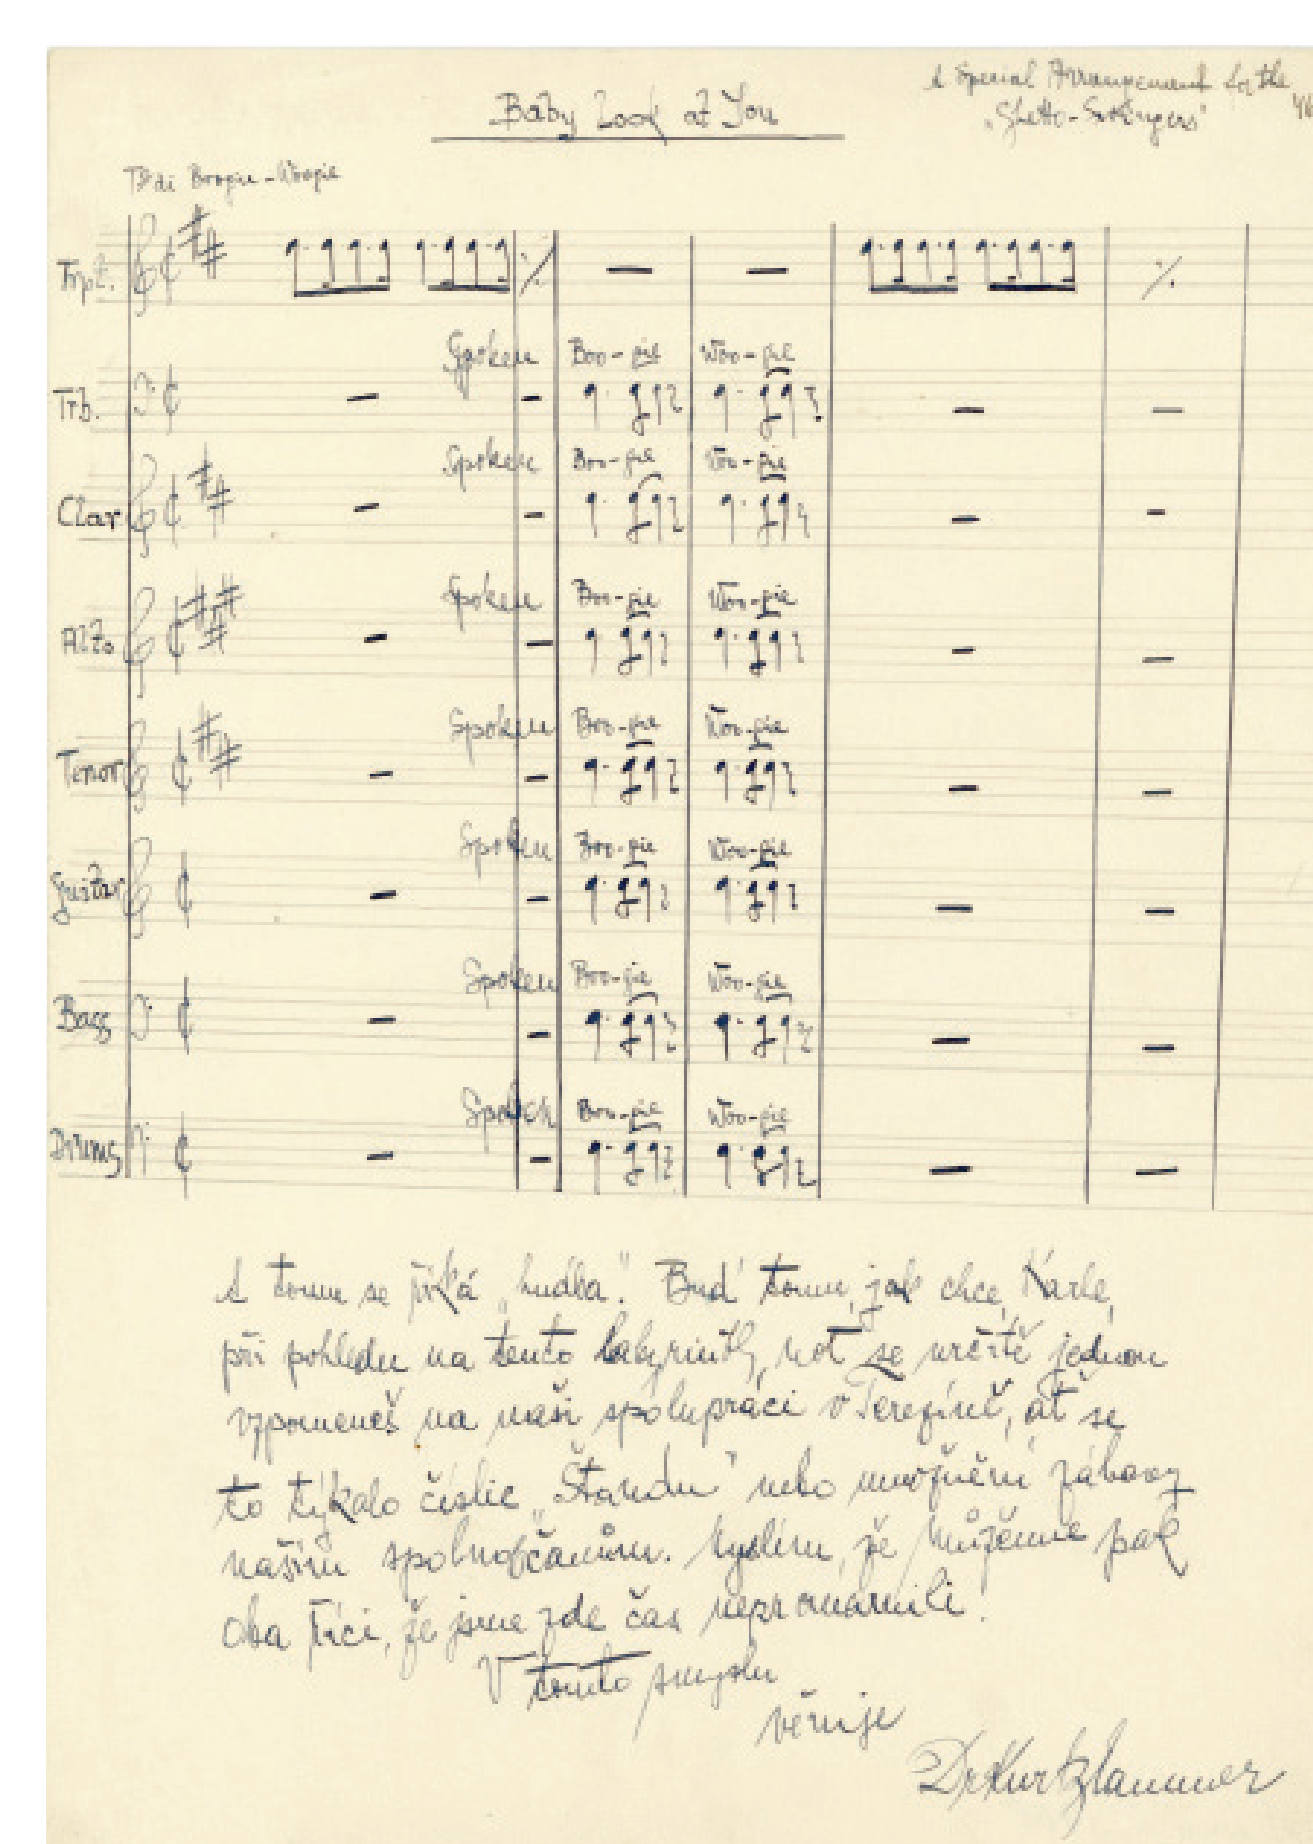 Baby Look at You
A Special Arrangement for the
"Ghetto-Swingers"
Tº di Boogie-Woogie
Trpt.
Spoken Boo-gie Woo-gie
Trb.
Spoken Boo-gie Woo-gie
Clar
Spoken Boo-gie Woo-gie
Alto
Spoken Boo-gie Woo-gie
Tenor
Spoken Boo-gie Woo-gie
Guitar
Spoken Boo-gie Woo-gie
Bass
Spoken Boo-gie Woo-gie
Drums
A tomu se říká „hudba". Buď tomu jak chce, Karle,
při pohledu na tento labyrinth not se určitě jednou
vzpomeneš na naši spolupráci v Terezíně, ať se
to týkalo číslic „Štandu" nebo umožnění zábavy
našim spoluobčanům. Myslím, že můžeme pak
oba říci, že jsme zde čas nepromarnili.
V tomto smyslu
věrně
Dr Kurt